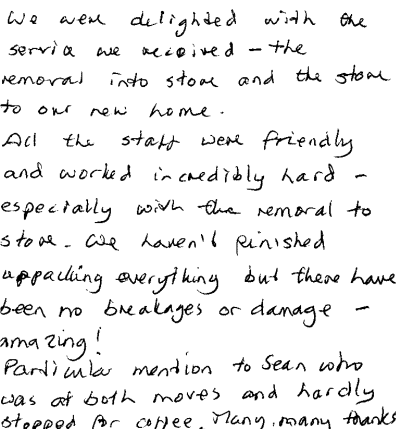 We were delighted with the
service we received - the
removal into store and the store
to our new home.
All the staff were friendly
and worked incredibly hard -
especially with the removal to
store. We haven't finished
uppacking everything but there have
been no breakages or damage -
amazing!
Particular mention to Sean who
was at both moves and hardly
stopped for coffee. Many, many thanks